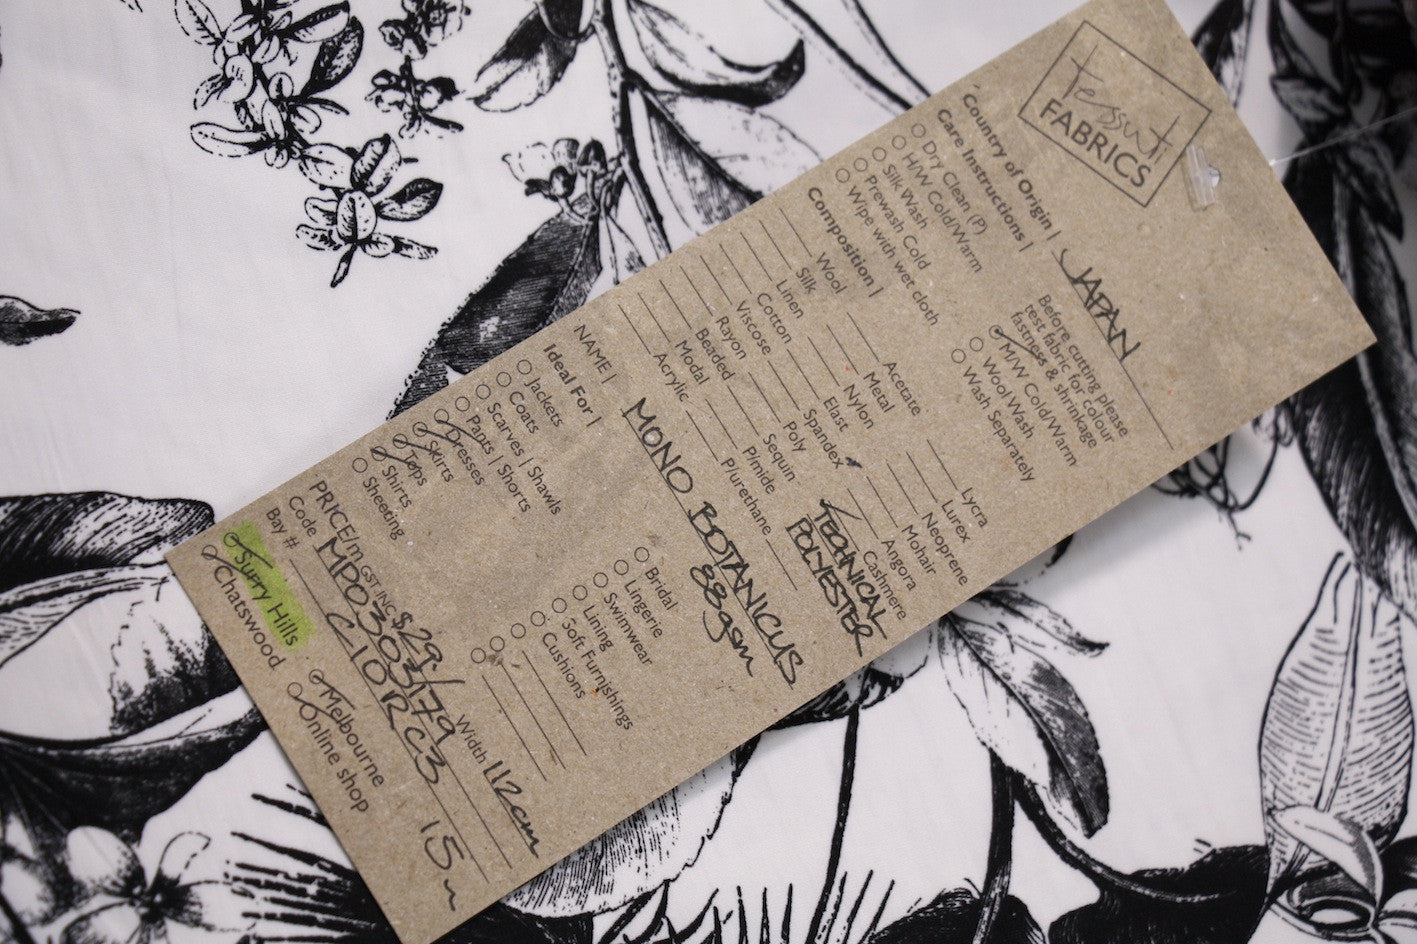 Tessuti
FABRICS
Country of Origin | JAPAN
Care Instructions |
Dry Clean (P)
H/W Cold/Warm
Silk Wash
Prewash Cold
Wipe with wet cloth
Before cutting please
test fabric for colour
fastness & shrinkage
M/W Cold/Warm
Wool Wash
Wash Separately
Composition |
Wool
Silk
Linen
Cotton
Viscose
Rayon
Beaded
Modal
Acrylic
Acetate
Metal
Nylon
Elast
Spandex
Poly
Sequin
P/mide
P/urethane
Lycra
Lurex
Neoprene
Mohair
Angora
Cashmere
TECHNICAL
POLYESTER
NAME | MONO BOTANICUS
88gsm
Ideal For |
Jackets
Coats
Scarves | Shawls
Pants | Shorts
Dresses
Skirts
Tops
Shirts
Sheeting
Bridal
Lingerie
Swimwear
Lining
Soft Furnishings
Cushions
PRICE/m GST INC $29./ Width 112cm
Code MP03003179
Bay # C10RC3 15m
Surry Hills
Chatswood
Melbourne
Online shop